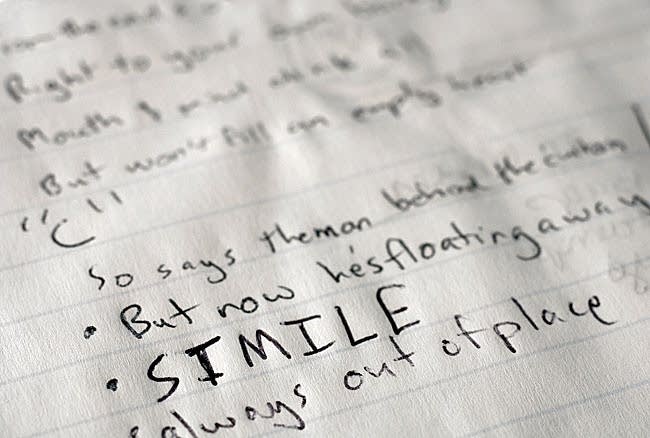 Right to your own
Mouth &
But won't fill an empty heart
"C"
So says the man behind the curtain
• But now he's floating away
• SIMILE
always out of place